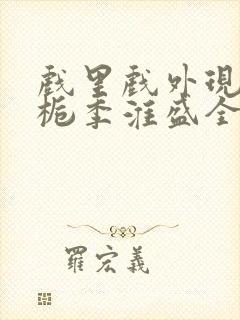 戲里戲外現
栀季淮盛全
羅宏義